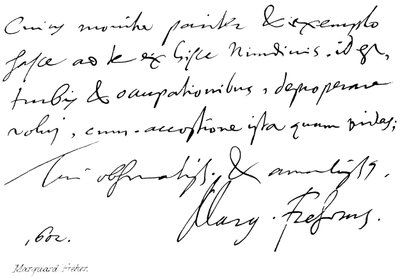 Cuius monitu pariter & exemplo
hasce ad te ex hisce Nundinis. id est,
turbis & occupationibus, deproperare
volui, cum accessione ista quam vides;
Tui obseruatiss. & amantiss.
Marq. Freherus.
1602.
Marquard Freher.